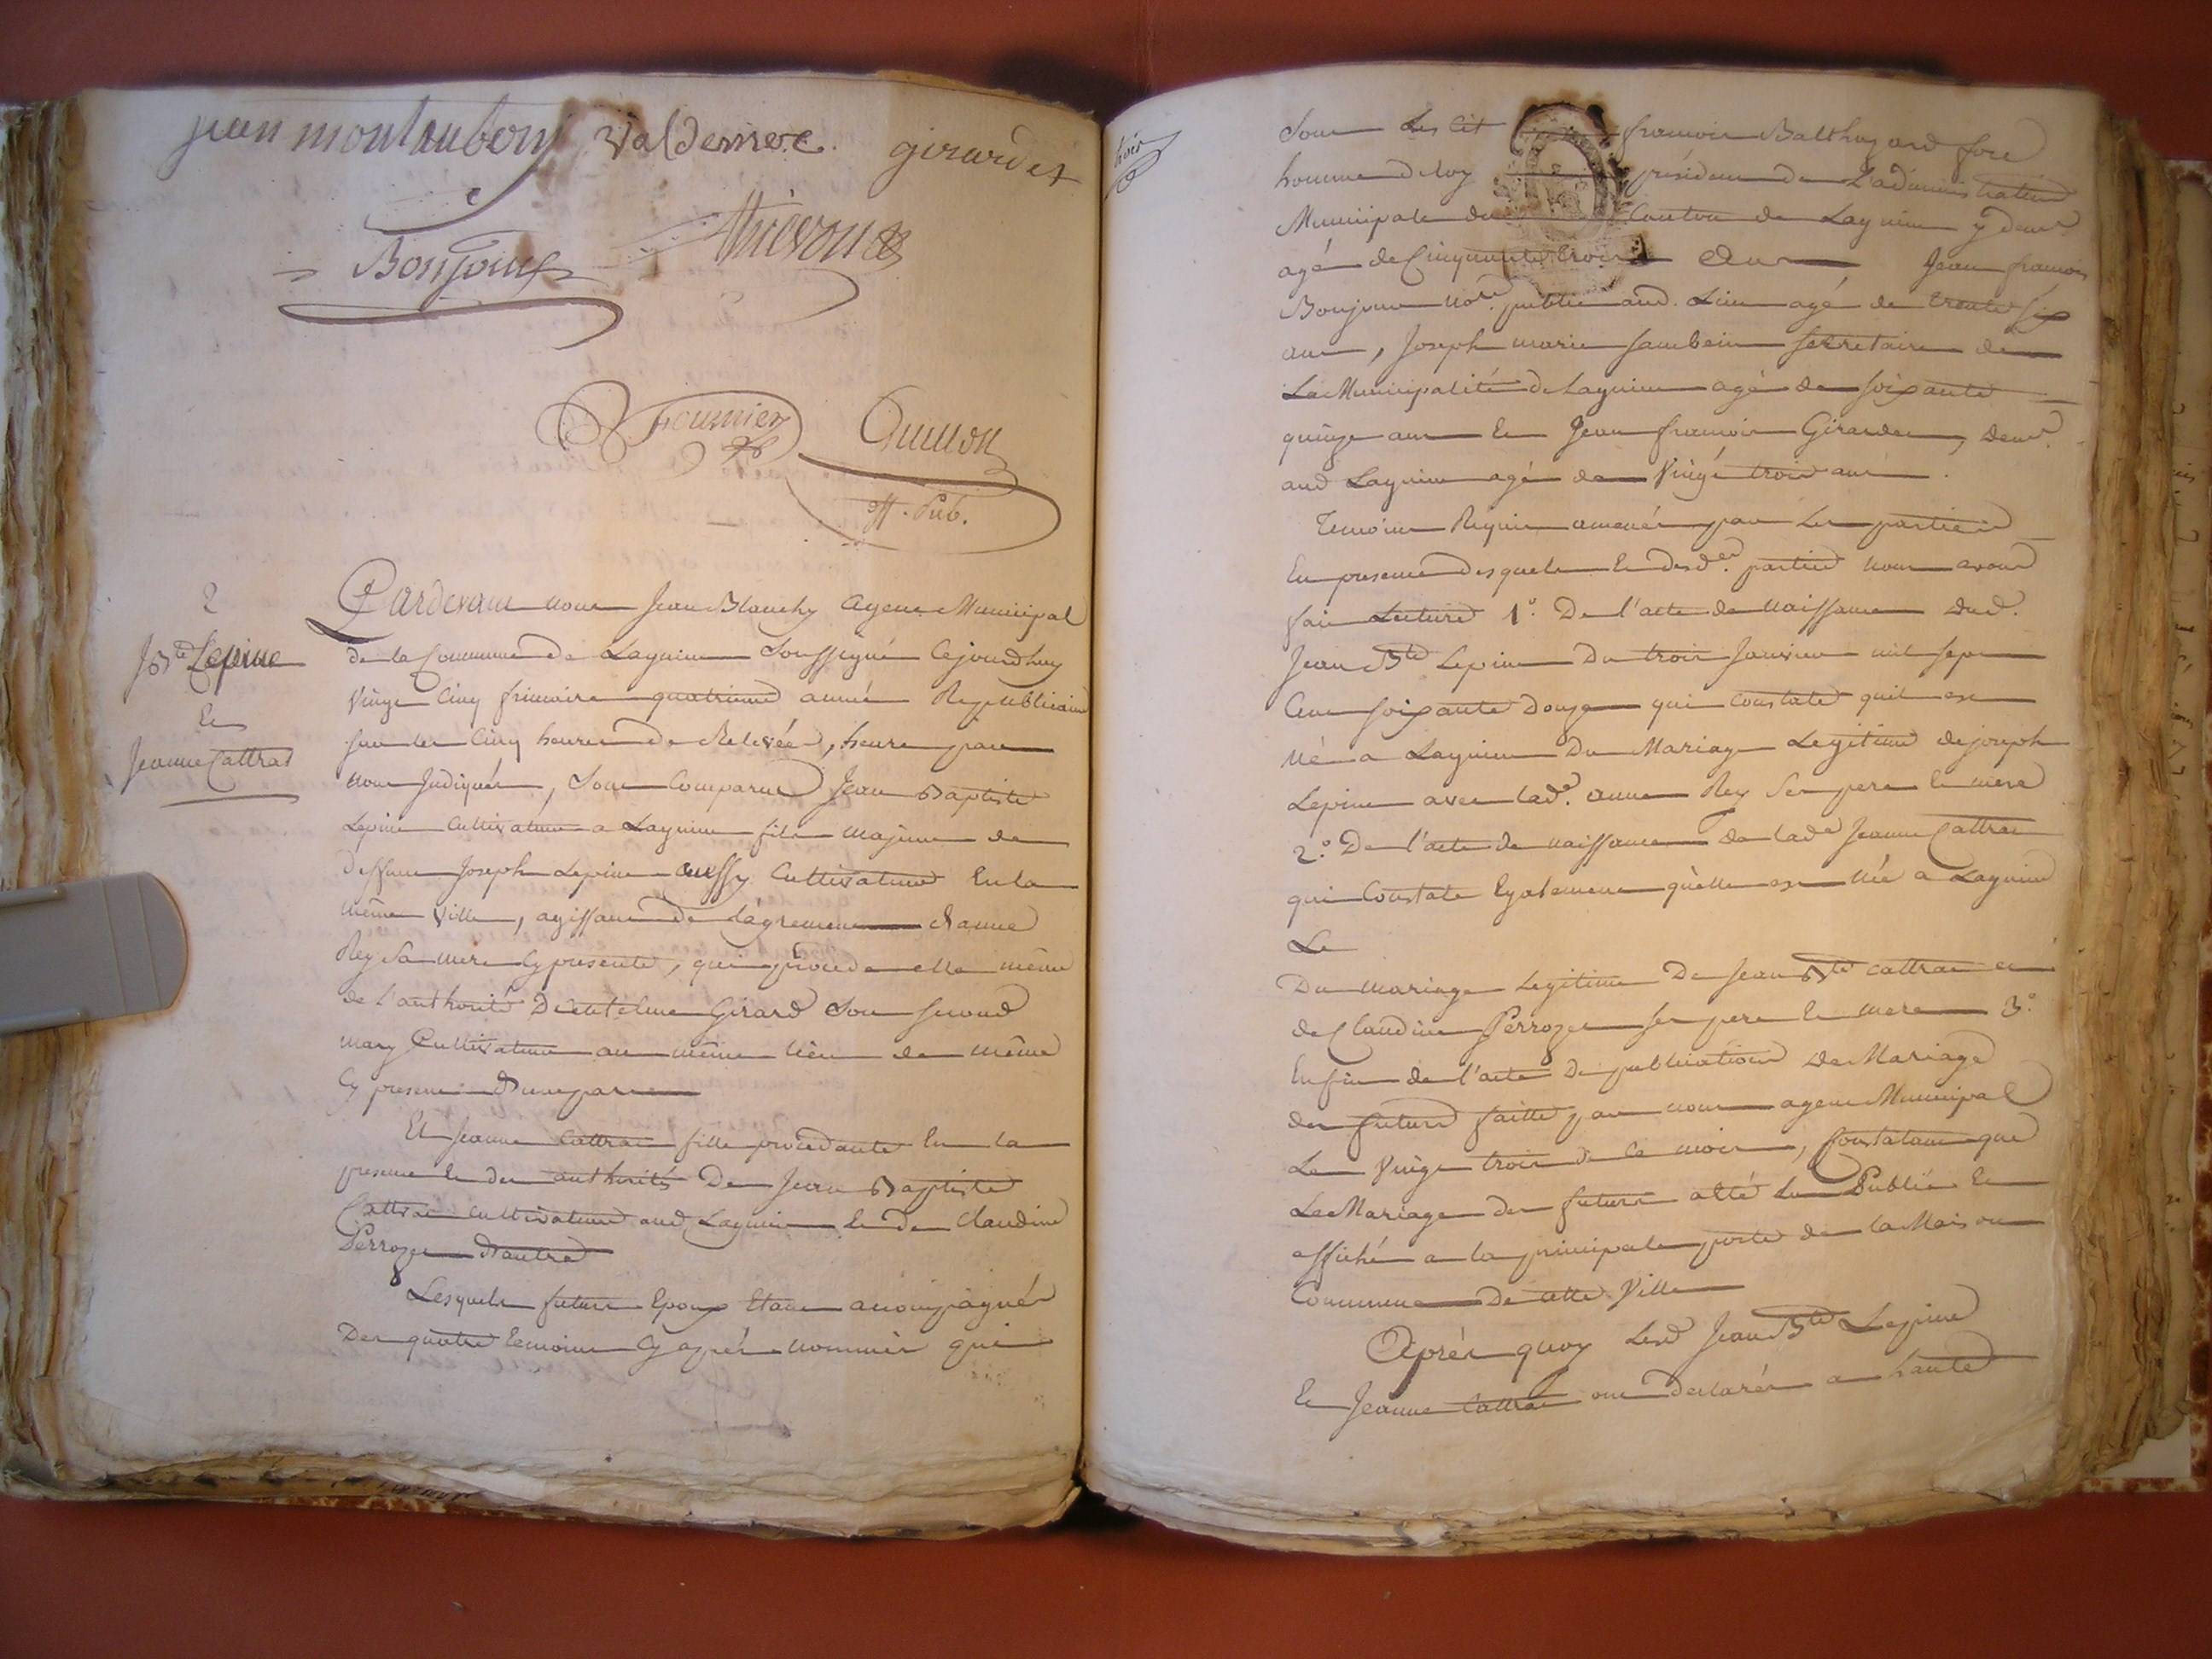 jean montaubon valdemere girardet
Bonjour Thievon
Fournier Quinson
off. Pub.
2
J Bte Lepine
Et
Jeanne Cattrat
Pardevant nous Jean Blanchy Agent Municipal
de la Commune de Lagnieu Soussigné Cejourdhuy
Vingt Cinq frimaire quatrieme année Republicaine
sur les Cinq heures de Relevée, heure par
nous Indiquée, Sont Comparus Jean Baptiste
Lepine Cultivateur a Lagnieu fils majeur de
deffunt Joseph Lepine aussy Cultivateur En la
même Ville, agissant de l'agrement d'anne
Rey Sa mere Cy presente, qui procede elle même
de l'authorité D'Anthelme Girard Son second
mary Cultivateur au même lieu de même
Cy present D'une part
Et Jeanne Cattrat fille procedante En la
presence et des authorités De Jean Baptiste
Cattrat cultivateur aud Lagnieu Et De Claudine
Perrozet D'autre
Lesquels futurs Epoux Etant accompagnés
Des quatre temoins Cy après nommés qui
Sont Les Cit françois Balthazard
homme de loy président de L'administration
Municipale du Canton de Lagnieu y demt
agé de Cinquante trois ans Jean francois
Bonjour notre public aud. Lieu agé de trente six
ans, Joseph marie Secretaire de
La Municipalité de Lagnieu agé de soixante
quinze ans Et Jean francois Girardet, demt
aud Lagnieu agé de Vingt trois ans.
Temoins Requis amenés par les parties
En presence desquels Et desdes parties nous avons
fait Lecture 1°. De l'acte de naissance dud.
Jean Bte Lepine Du trois Janvier mil sept
Cent soixante Douze qui constate quil est
Né a Lagnieu Du Mariage Legitime de joseph
Lepine avec lade. anne Rey Ses pere Et mere
2.° De l'acte de naissance de lade Jeanne Cattrat
qui Constate Egalement qu'elle est Née a Lagnieu
Le
Du mariage Legitime De Jean Bte Cattrat et
de Claudine Perrozet ses pere Et mere 3.°
Enfin de l'acte De publication De Mariage
des futurs faitte par nous agent Municipal
Le Vingt trois de Ce mois, Constatant que
Le Mariage des futurs a été Lu Publié Et
affiché a la principale porte de la Maison
Commune De cette Ville
Après quoy Lesd Jean Bte Lepine
Et Jeanne Cattrat ont declarés a haute